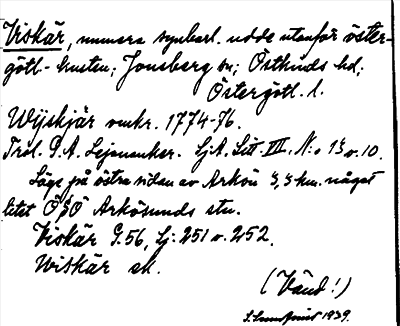 Viskär, numera synbarl. udde utanför öster-
götl. kusten; Jonsberg sn; Östkinds hd;
Östergötl. l.
Wijskjär omkr. 1774-76.
P. A. Lejonanker. Lj. A. Litt. III. N:o 13 v. 10.
Läge på östra sidan av Arkön 3,3 km. något
litet ÖSÖ Arkösunds stn.
Viskär G. 56, Lj: 251 v. 252.
Wiskär sk.
(Vänd!)
1939.